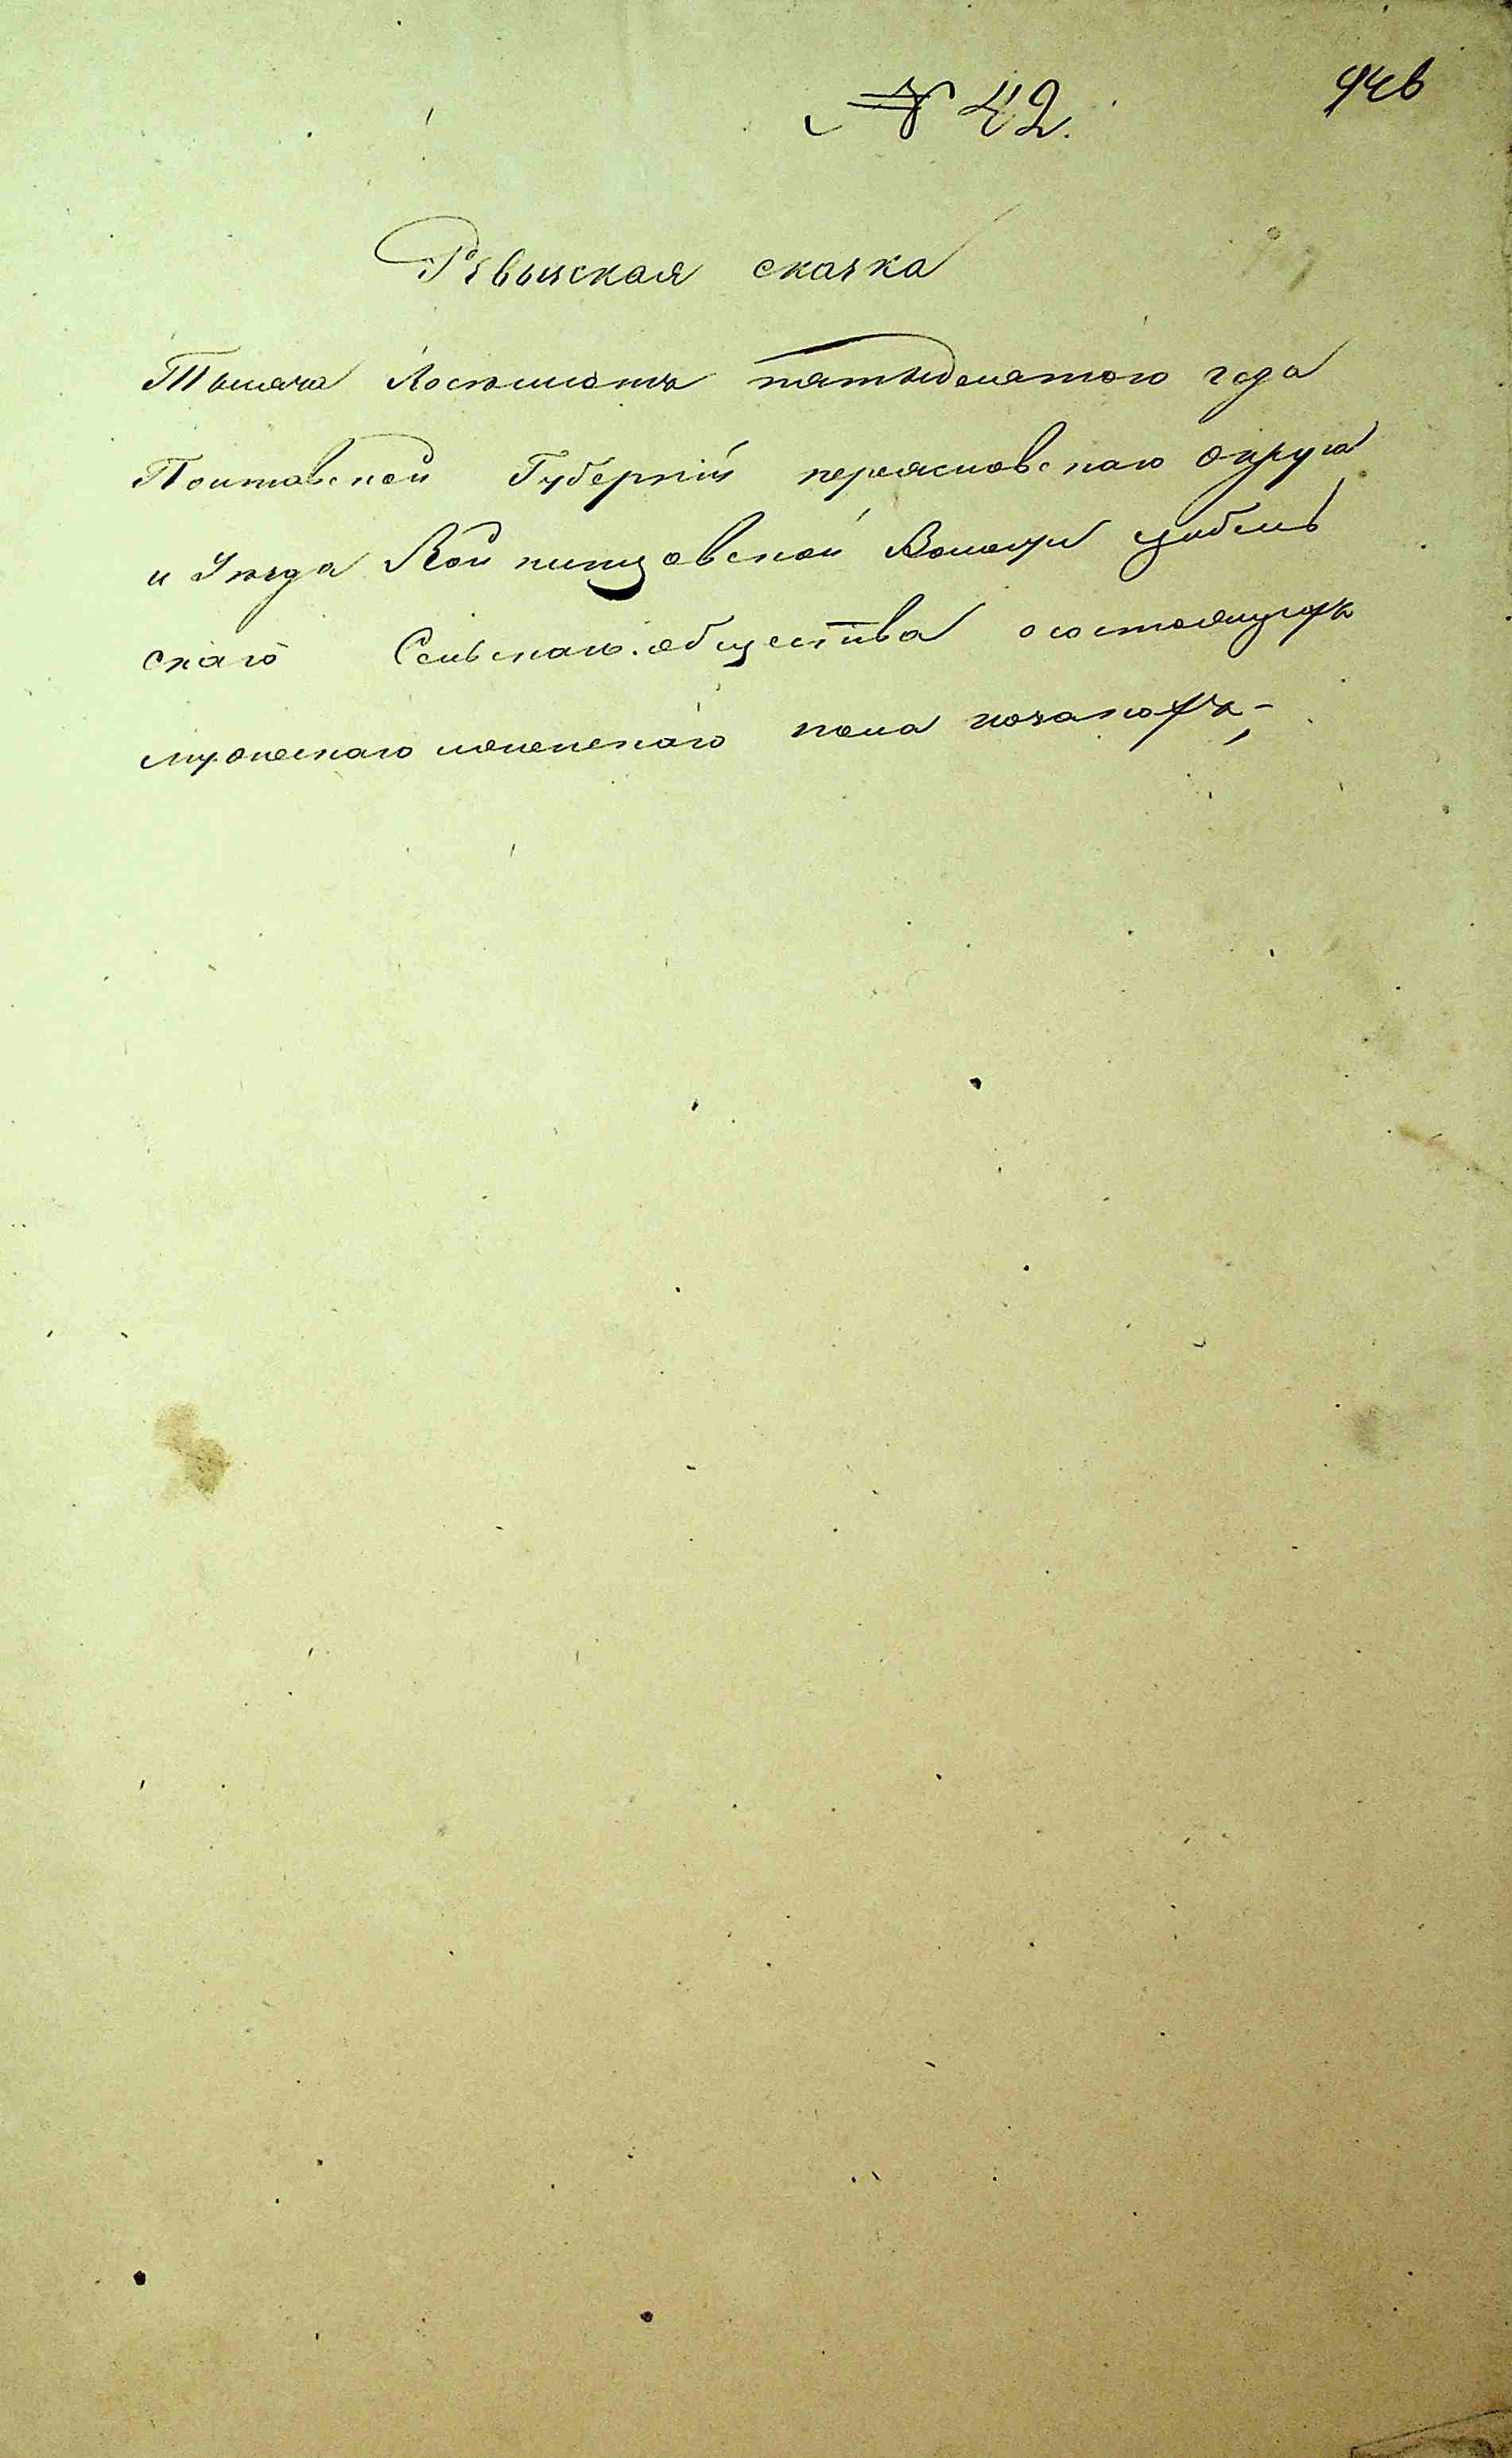 № 42.
946
Ревизская сказка
Тысяча Восемьсотъ пятьдесятого года
Полтавской Губерніи переясловскаго округа
и Уезда Войтинцовской Волости цыбель
скаго Сельскаго общества о состоящихъ
мужескаго женскаго пола козакахъ